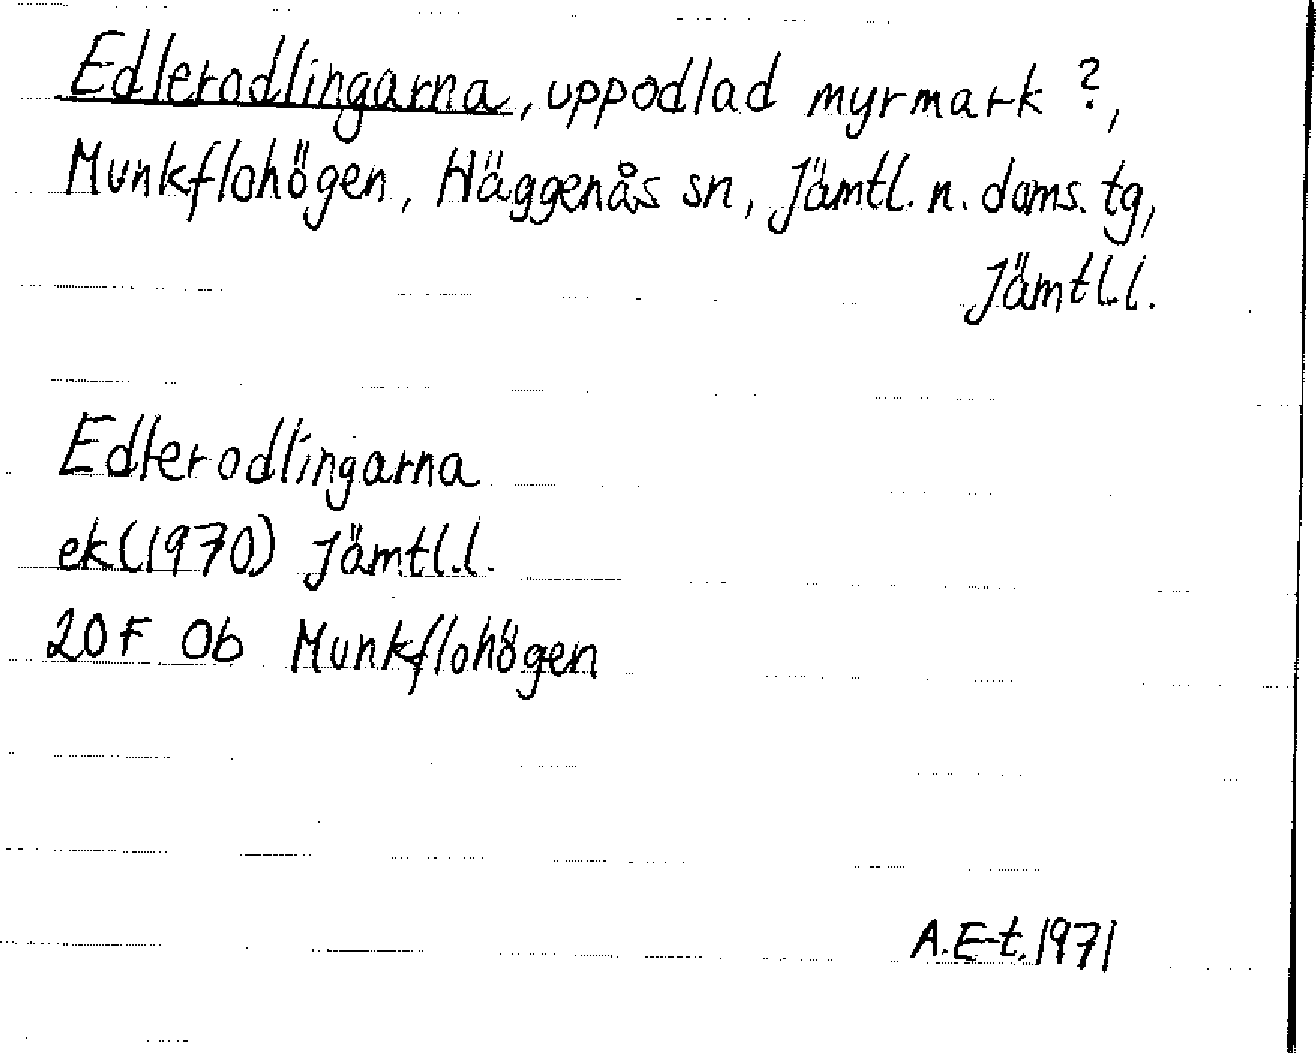 Edlerodlingarna, uppodlad myrmark ?,
Munkflohögen, Häggenås sn, Jämtl. n. doms. tg,
Jämtl.l.
Edlerodlingarna
ek(1970) Jämtl.l.
20F 0b Munkflohögen
A.E-t.1971